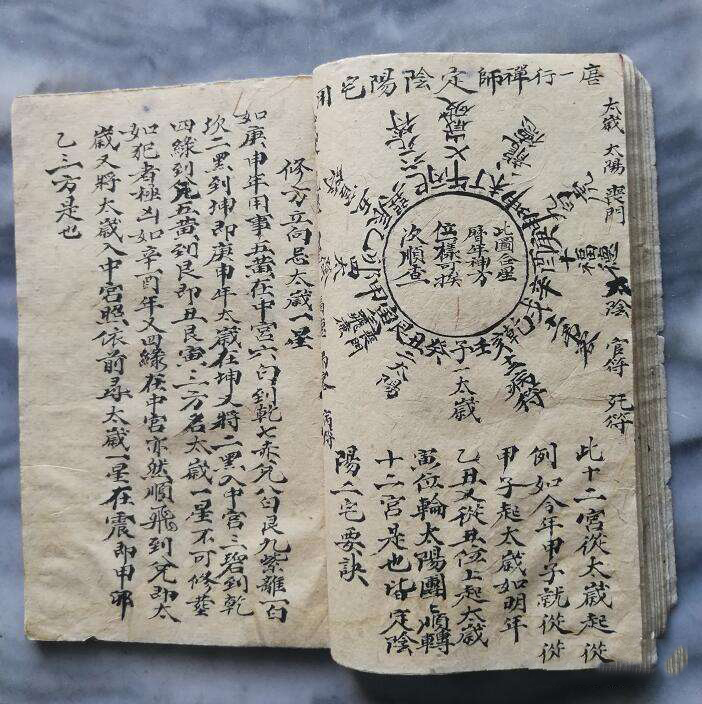 唐一行禪師定陰陽宅用
太歲 太陽 喪門 太陰 官符 死符
此圖合座
曆年神方
位樣可挨
次順查
一太歲
二太陽
病符
福德
龍德
歲破
此十二宮從太歲起從
例如今年甲子就從從
甲子起太歲如明年
乙丑又從丑位上起太歲
寅位輪太陽團團順轉
十二宮是也皆定陰
陽二宅要訣
修方立向忌太歲一星
如庚申年用事五黃在中宮六白到乾七赤兌八白艮九紫離一白
坎二黑到坤即庚申年太歲在坤又將二黑入中宮三碧到乾
四綠到兌五黃到艮即丑艮寅三方名太歲一星不可修塋
如犯者極凶如辛酉年又四綠在中宮亦然順飛到兌即太
歲又將太歲入中宮照依前尋太歲一星在震即甲卯
乙三方是也